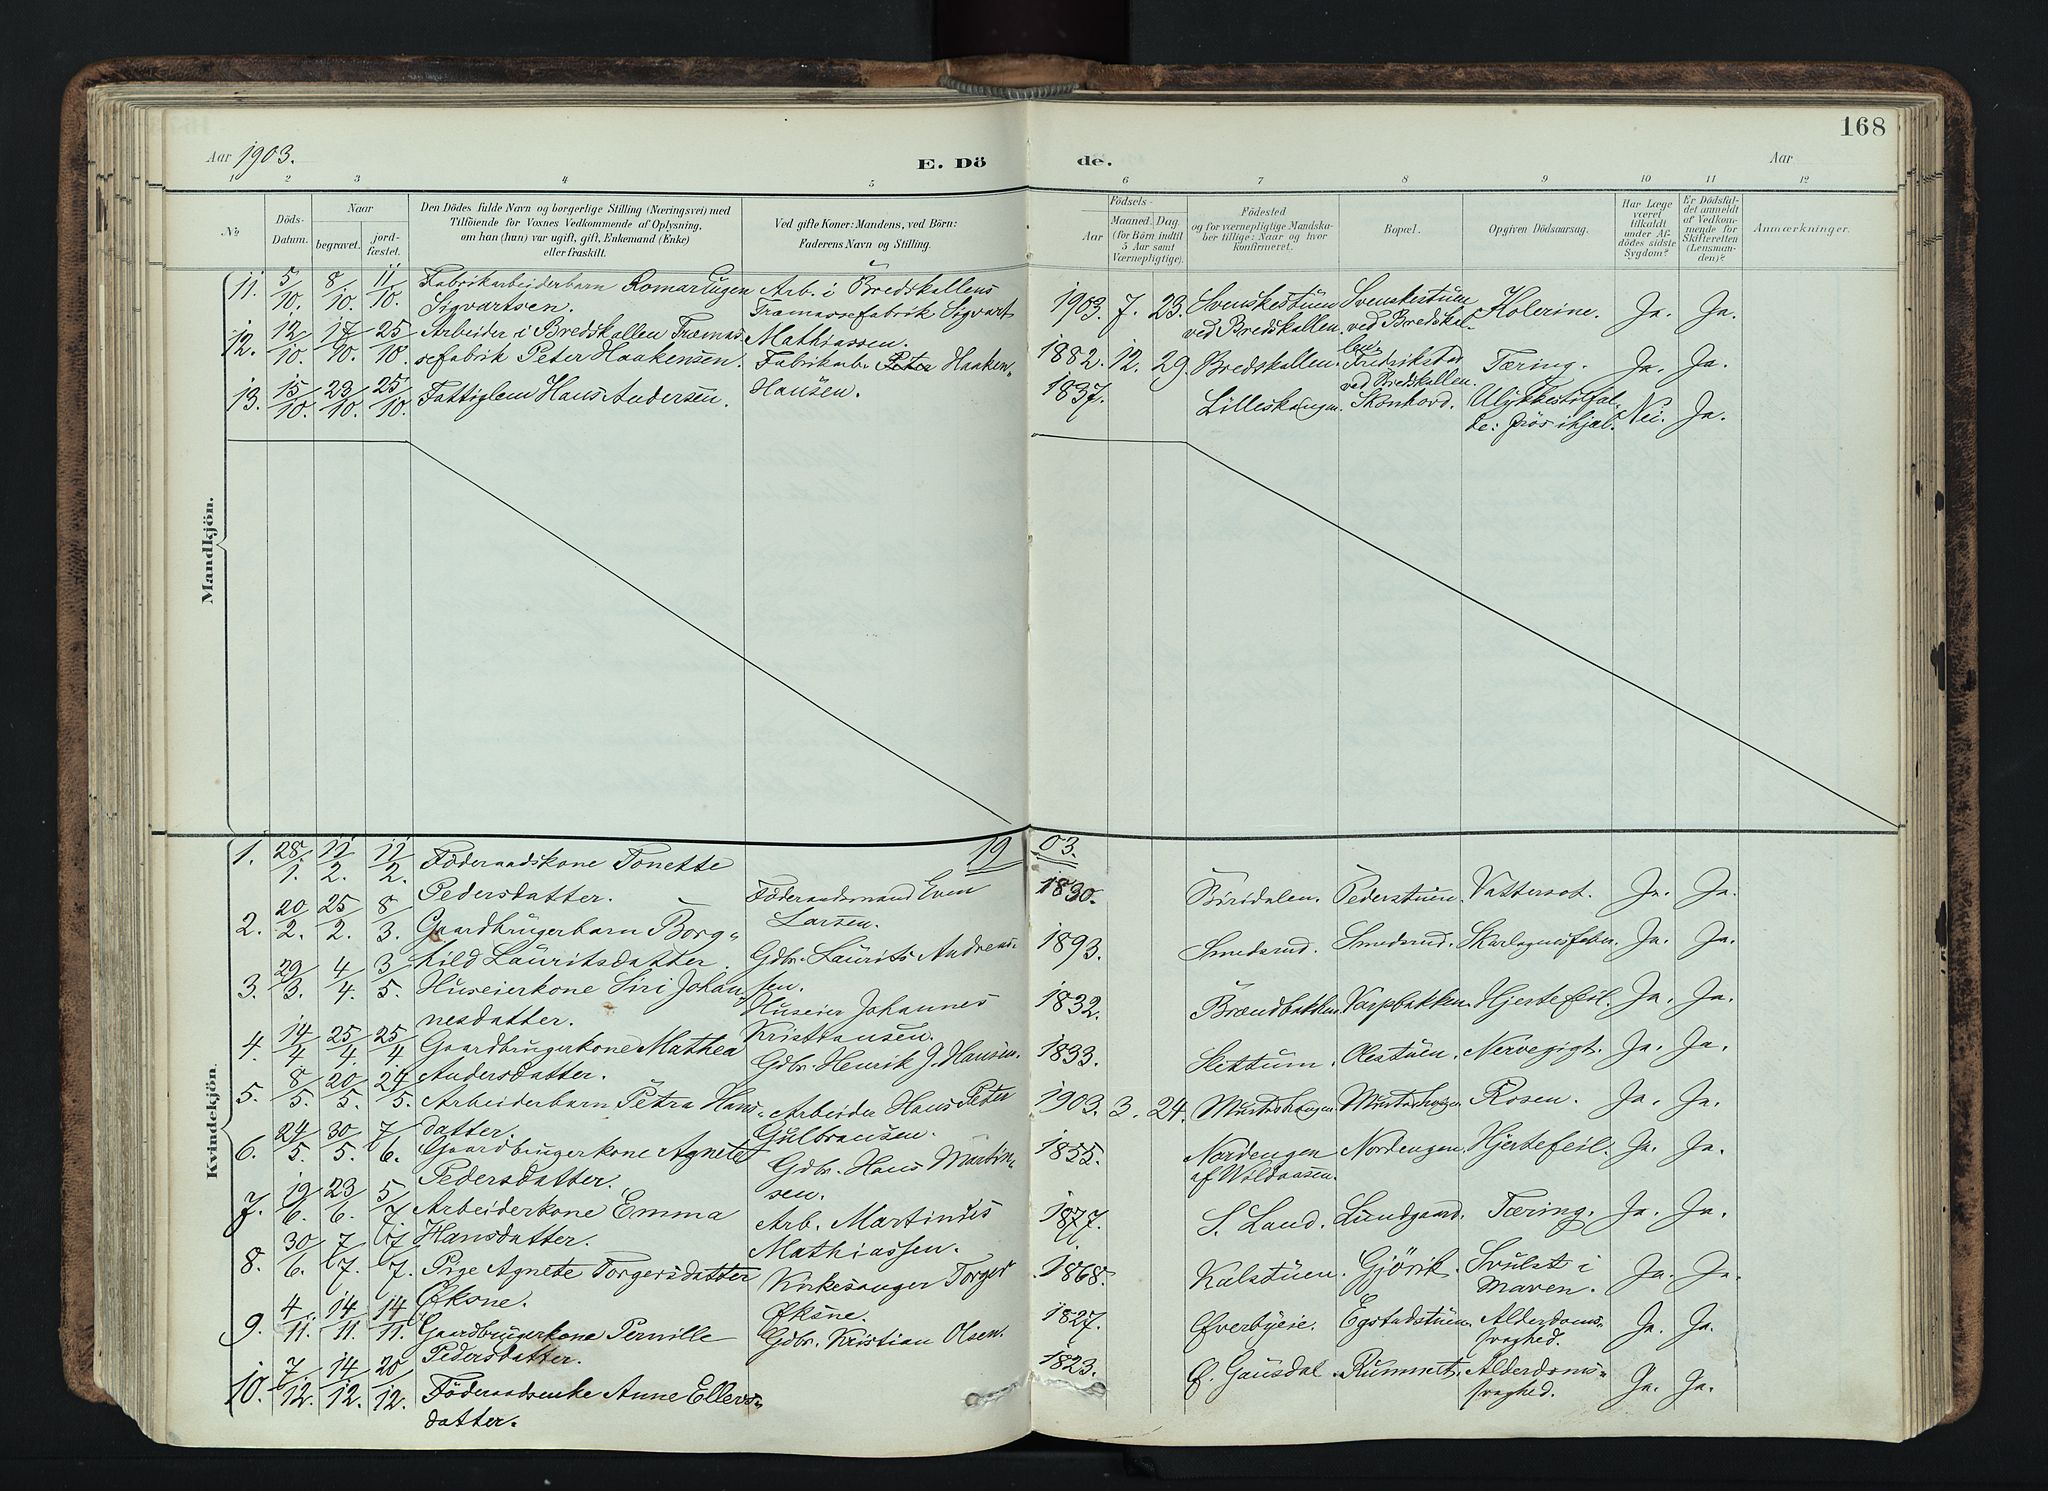 168
Aar 1903.
E. Dö
de.
Aar
1 2 3 4 5 6 7 8 9 10 11 12
No
Döds-
Datum.
Naar
begravet.
jord-
fæstet.
Den Dödes fulde Navn og borgerlige Stilling (Næringsvei) med
Tilföiende for Voxnes Vedkommende af Oplysning,
om han (hun) var ugift, gift, Enkemand (Enke)
eller fraskilt.
Ved gifte Koner: Mandens, ved Börn:
Faderens Navn og Stilling.
Födsels-
Aar
Maaned. Dag.
(for Börn indtil
5 Aar samt
Værnepligtige).
Födested
og for værnepligtige Mandska-
ber tillige: Naar og hvor
konfirmeret.
Bopæl.
Opgiven Dödsaarsag.
Har Læge
været
tilkaldt
under Af-
dödes sidste
Sygdom?
Er Dödsfal-
det anmeldt
af Vedkom-
mende for
Skifteretten
(Lensman-
den)?
Anmærkninger.
Mandkjön.
11. 5/10. 8/10. 11/10. Fabrikarbeiderbarn Romarlugen
Sigvartsen.
Arb. i Bredskallens
Træmassefabrik Sigvart
Mathiassen.
1903. 7. 23. Svenskestuen
ved Bredskallen.
Svenskestuen
ved Bredskal-
len.
Kolerine. Ja. Ja.
12. 12/10. 17/10. 25/10 Arbeider i Bredskallen Træmas-
sefabrik Peter Haakensen.
Fabrikarb. Haaken
Hansen.
1882. 12. 29. Bredskallen.
Fredrikstad
ved Bredskallen.
Tæring. Ja. Ja.
13. 15/10. 23/10. 25/10. Fattiglem Hans Andersen.
1837. Lilleshaugen. Skonhovd.
Ulykkestilfæl-
de: frös ihjæl.
Nei. Ja.
Kvindekjön.
1903.
1. 28/1. 11/2. 11/2. Föderaadskone Tonette
Pedersdatter.
Föderaadsmand Even
Larsen.
1830. Biridalen. Pederstuen. Vattersot. Ja. Ja.
2. 20/2. 25/2. 8/3. Gaardbrugerbarn Borg-
hild Lauritsdatter
Gdbr. Laurits Andreas-
sen.
1893. Smedsrud. Smedsrud. Skarlagensfeber. Ja. Ja.
3. 29/3. 4/4. 3/5. Huseierkone Siri Johan-
nesdatter.
Huseier Johannes
Kristiansen.
1832. Brændbakken. Varpbakken. Hjertefeil. Ja. Ja.
4. 14/4 25/4 25/4 Gaardbrugerkone Mathea
Andersdatter.
Gdbr. Henrik J. Hansen.
1833. Slettum. Olestuen. Nervegigt. Ja. Ja.
5. 8/5. 20/5. 24/5. Arbeiderbarn Petra Hans-
datter.
Arbeider Hans Peter
Gulbransen.
1903. 3. 24. Mustushaugen Mustushaugen Rosen. Ja. Ja.
6. 24/5. 30/5. 7/6. Gaardbrugerkone Agnete
Pedersdatter.
Gdbr. Hans Martin-
sen.
1855. Nordengen
af Voldaasen.
Nordengen. Hjertefeil. Ja. Ja.
7. 19/6. 23/6. 5/7. Arbeiderkone Emma
Hansdatter.
Arb. Martinus
Mathiassen.
1877. S. Land. Lundgaard. Tæring. Ja. Ja.
8. 30/6. 7/7. 7/7. Pige Agnete Torgersdatter
Øksne.
Kirkesanger Torger
Øksne.
1868. Kalstuen. Gjövik. Svulst i
Maven.
Ja. Ja.
9. 4/11. 14/11. 14/11. Gaardbrugerkone Pernille
Pedersdatter.
Gdbr. Kristian Olsen.
1827. Øverbyeie. Egstadstuen. Alderdoms-
svaghed.
Ja. Ja.
10. 7/12. 14/12. 20/12. Föderaadsenke Anne Ellevs-
datter.
1823. Ø. Gausdal. Rummet. Alderdoms-
svaghed.
Ja. Ja.